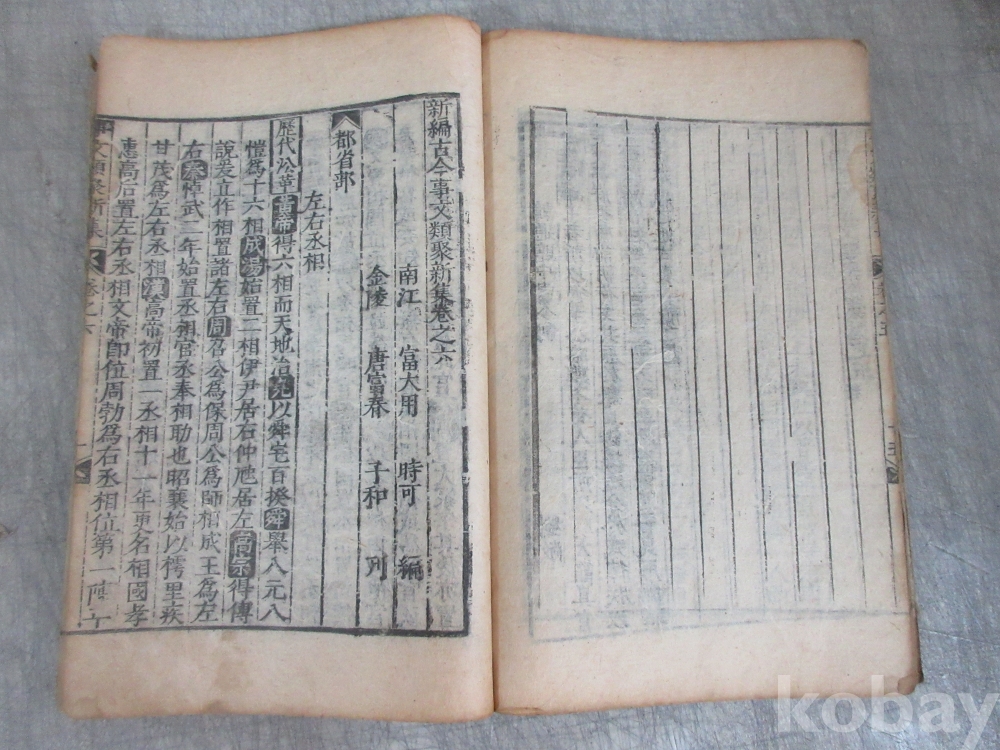 新編古今事文類聚新集卷之六
南江 富大用 時可 編
金陵 唐富春 子和 刋
都省部
左右丞相
歷代㳂革黃帝得六相而天地治堯以舜宅百揆舜舉八元八
愷爲十六相成湯始置二相伊尹居右仲虺居左高宗得傅
說爰立作相置諸左右周召公爲保周公爲師相成王爲左
右秦悼武二年始置丞相官丞奉相助也昭襄始以樗里疾
甘茂爲左右丞相漢高帝初置一丞相十一年更名相國孝
惠高后置左右丞相文帝即位周勃爲右丞相位第一陳平
事文類聚新集 卷之六
kobay